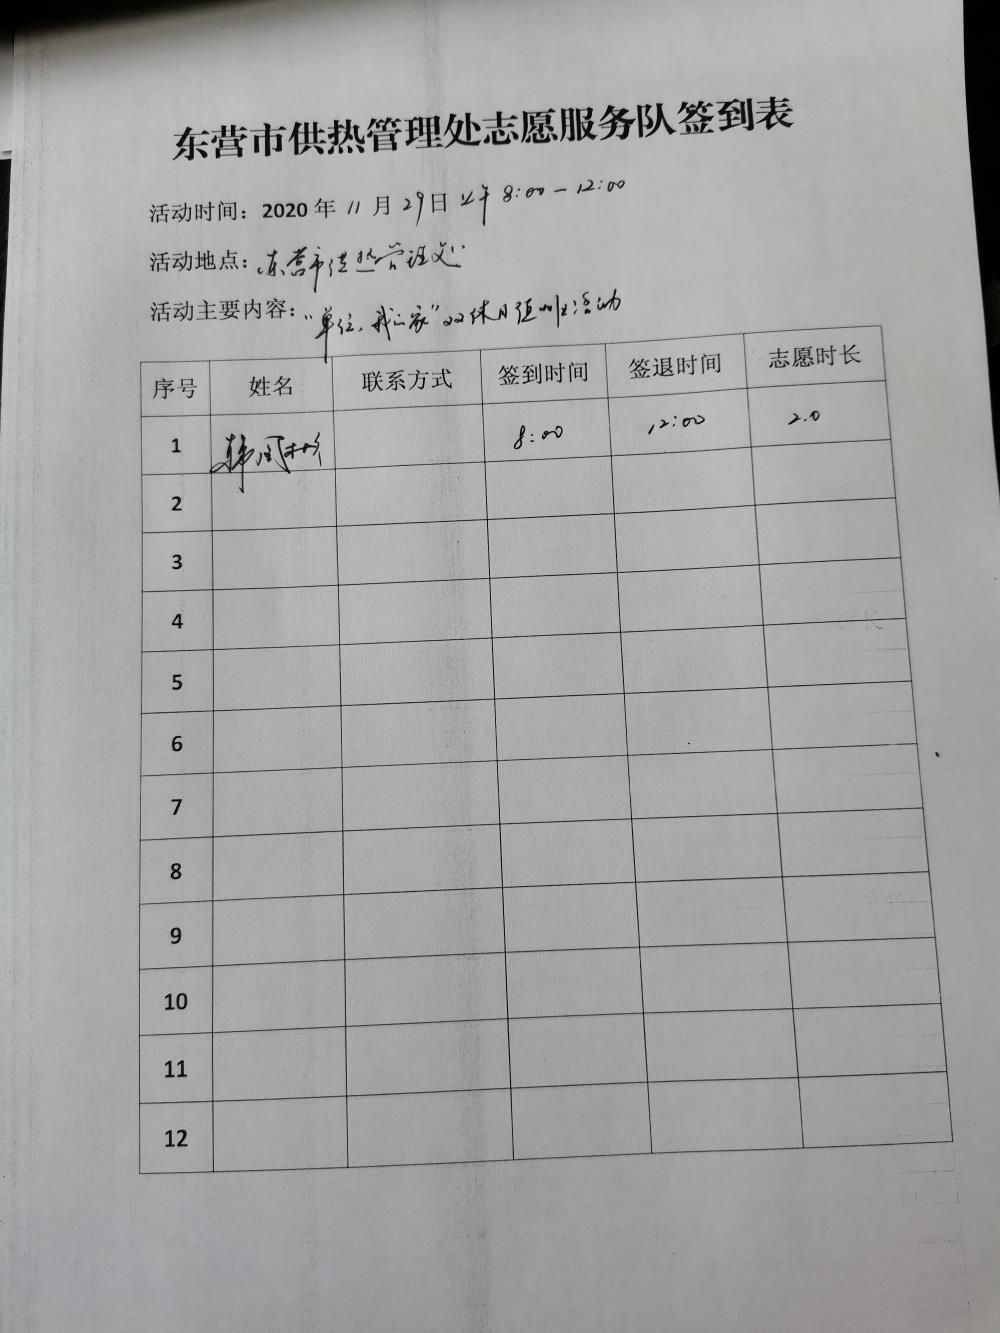 东营市供热管理处志愿服务队签到表
活动时间：2020 年 11 月 29 日 上午 8:00－12:00
活动地点：东营市供热管理处
活动主要内容：“单位，我的家”双休日值班活动
序号 姓名 联系方式 签到时间 签退时间 志愿时长
1 韩国彬 8:00 12:00 2.0
2
3
4
5
6
7
8
9
10
11
12